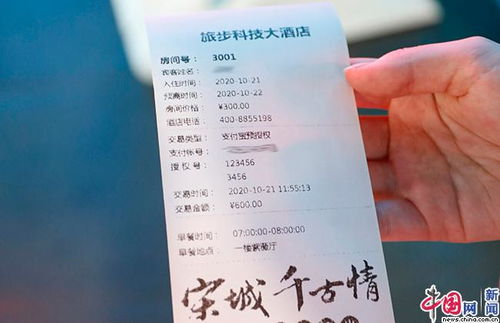 旅步科技大酒店
房间号： 3001
宾客姓名：
入住时间： 2020-10-21
预离时间： 2020-10-22
房间价格： ¥300.00
酒店电话： 400-8855198
交易类型： 支付宝预授权
支付帐号：
授 权 号： 123456
3456
交易时间： 2020-10-21 11:55:13
交易金额： ¥600.00
早餐时间： 07:00:00-08:00:00
早餐地点： 一楼宴宾厅
宋城千古情
中国网新闻
news.china.com.cn